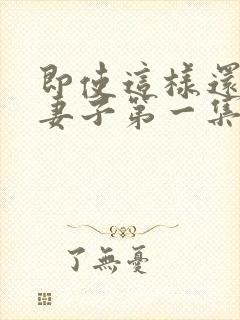 即使這樣還
妻子第一集
了無憂